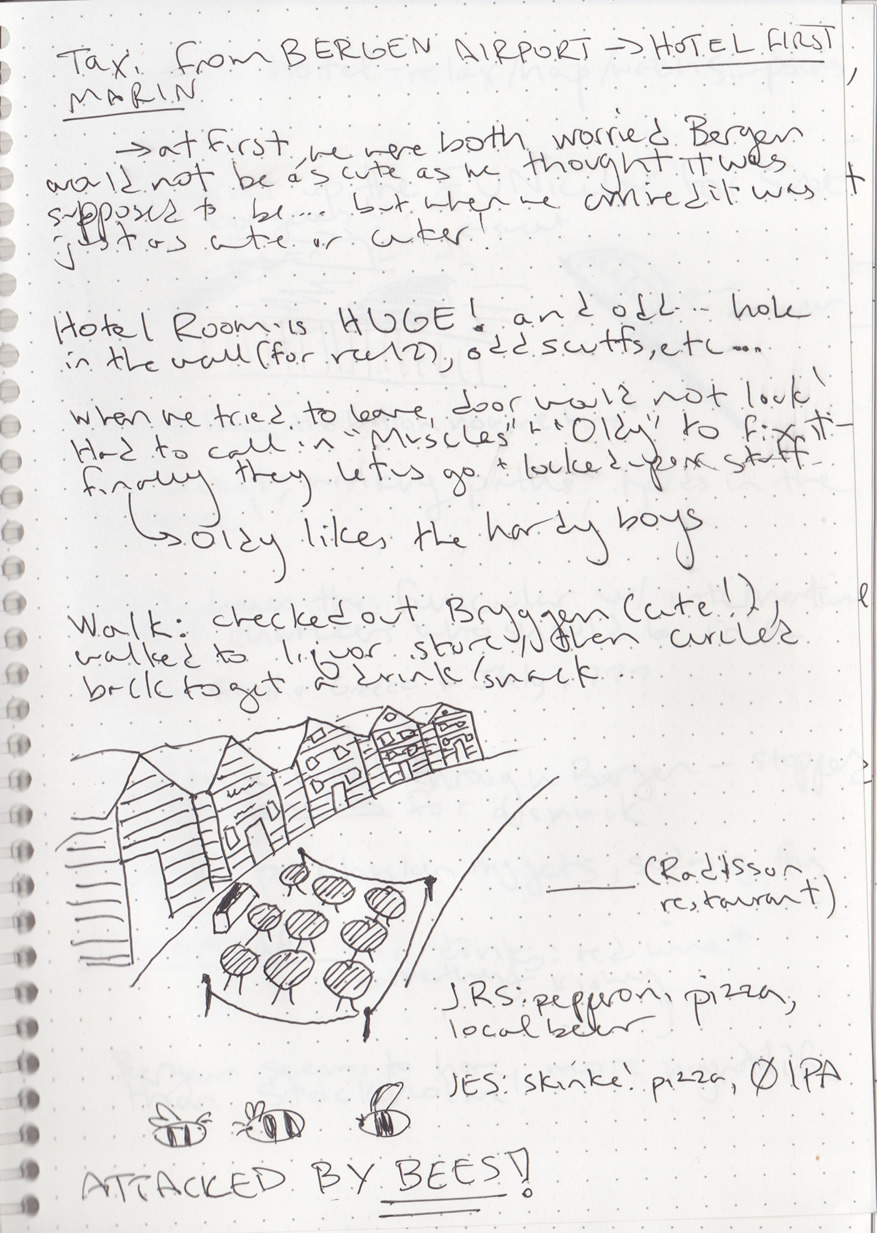 Taxi from BERGEN AIRPORT → HOTEL FIRST
MARIN
→ at first, we were both worried Bergen
would not be as cute as we thought it was
supposed to be... but when we arrived it was
just as cute or cuter!
Hotel Room is HUGE! and odd... hole
in the wall (for reelz), odd scuffs, etc...
when we tried to leave, door would not lock!
Had to call in "Muscles" + "Oldy" to fix it-
finally they let us go + locked up our stuff.
→ Oldy likes the hardy boys
Walk: checked out Bryggen (cute!),
walked to liquor store, then circled
back to get a drink/snack.
(Radisson
restaurant)
JRS: pepperoni pizza,
local beer
JES: skinke! pizza, Ø IPA
ATTACKED BY BEES!